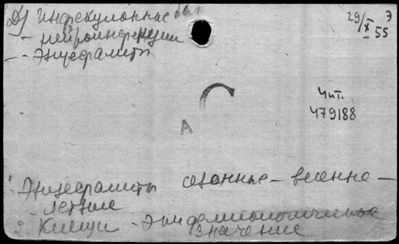 Д) Инфекционные бол
29/X 55
Э
- нейроинфекции
- - Энцефалиты
Чит.
479188
С
А
: Энцефалиты сезонные - весенне -
- летние
: Клещи - Эпидемиологическое
значение